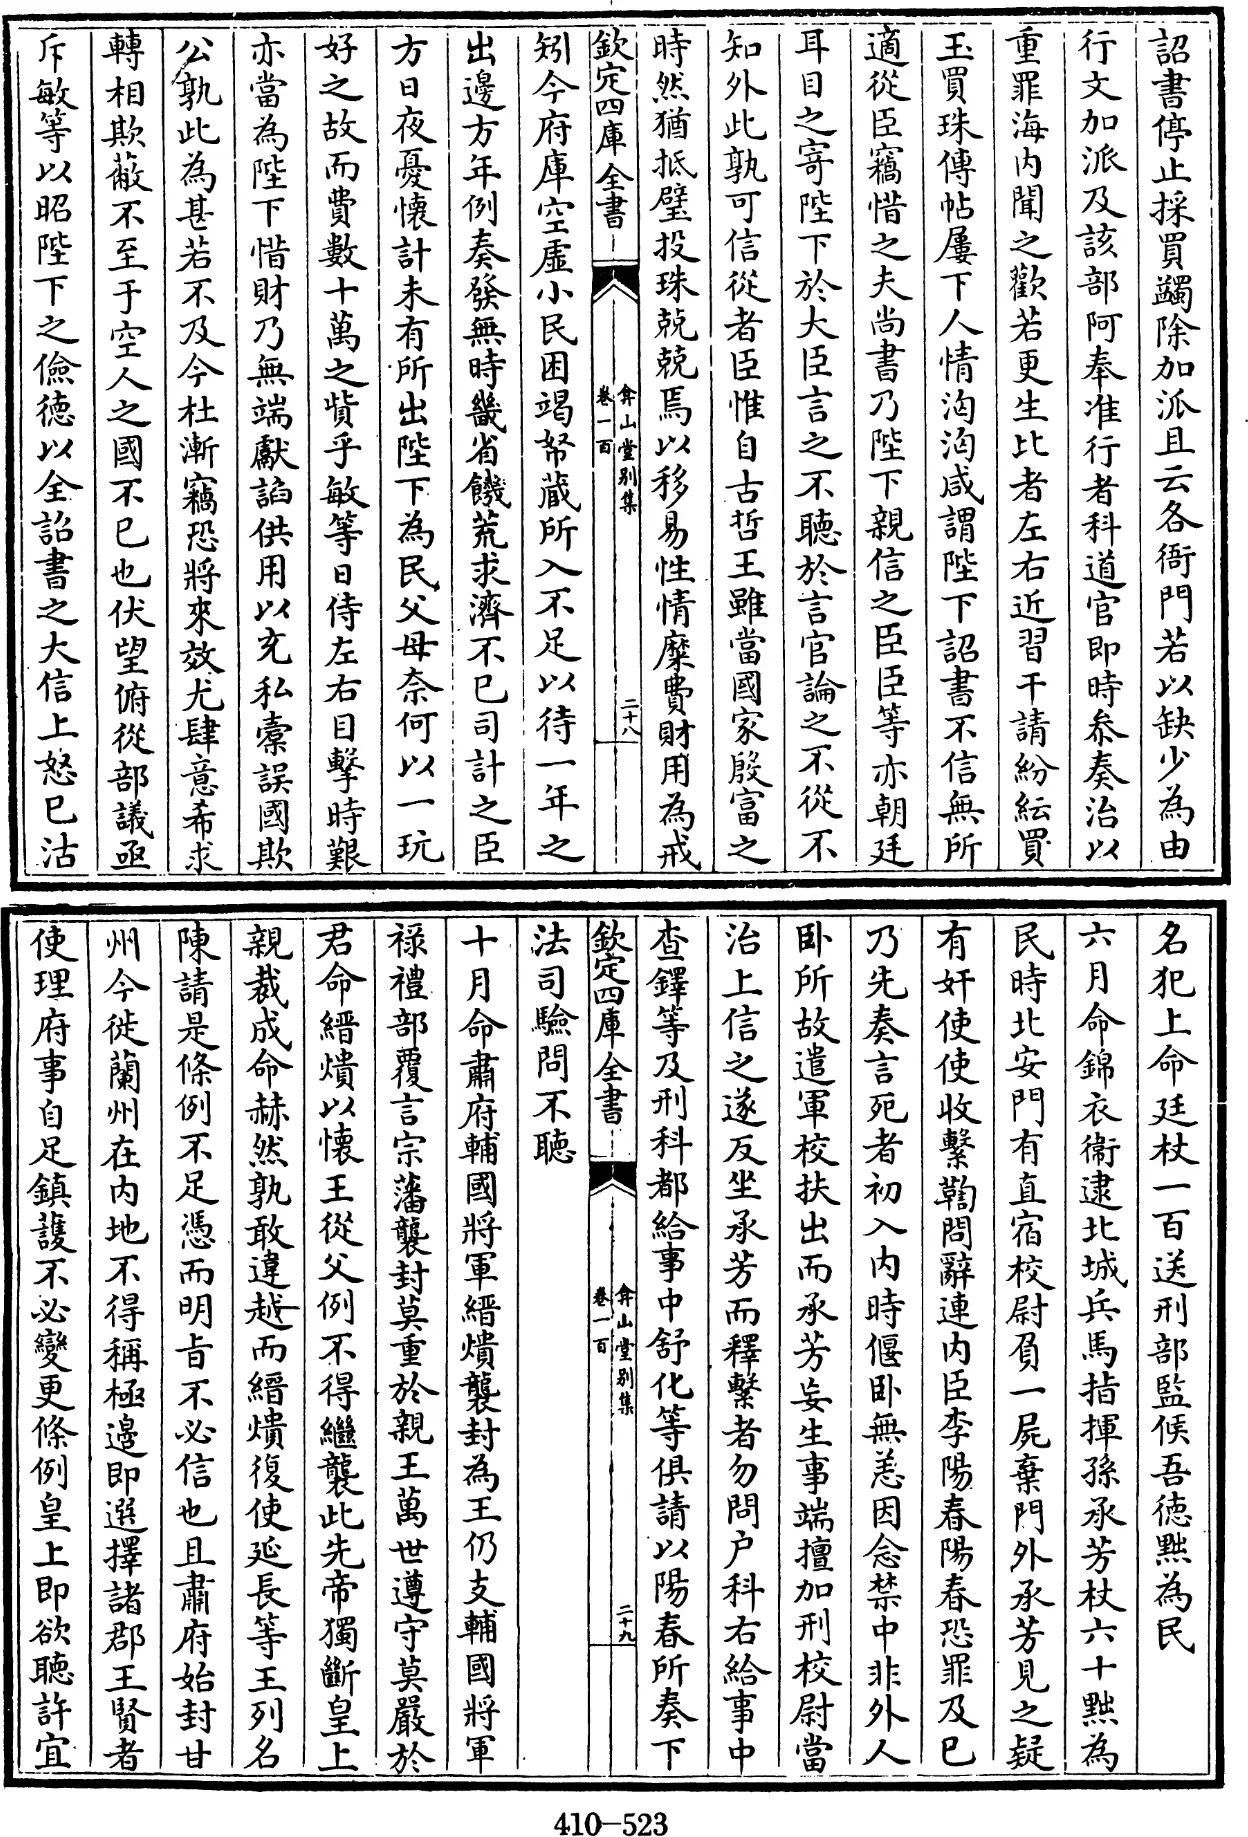 詔書停止採買蠲除加派且云各衙門若以缺少為由
行文加派及該部阿奉准行者科道官即時叅奏治以
重罪海内聞之歡若更生比者左右近習干請紛紜買
玉買珠傳帖屢下人情洶洶咸謂陛下詔書不信無所
適從臣竊惜之夫尚書乃陛下親信之臣臣等亦朝廷
耳目之寄陛下於大臣言之不聽於言官論之不從不
知外此孰可信從者臣惟自古哲王雖當國家殷富之
時然猶抵璧投珠兢兢焉以移易性情糜費財用為戒
欽定四庫全書
弇山堂别集
卷一百
二十八
矧今府庫空虚小民困竭帑藏所入不足以待一年之
出邊方年例奏發無時畿省饑荒求濟不已司計之臣
方日夜憂懐計未有所出陛下為民父母奈何以一玩
好之故而費數十萬之貲乎敏等日侍左右目擊時艱
亦當為陛下惜財乃無端獻諂供用以充私橐誤國欺
公孰此為甚若不及今杜漸竊恐將來效尤肆意希求
轉相欺蔽不至于空人之國不已也伏望俯從部議亟
斥敏等以昭陛下之儉徳以全詔書之大信上怒已沽
名犯上命廷杖一百送刑部監候吾徳黜為民
六月命錦衣衛逮北城兵馬指揮孫承芳杖六十黜為
民時北安門有直宿校尉負一屍棄門外承芳見之疑
有奸使使收繫鞫問辭連内臣李陽春陽春恐罪及已
乃先奏言死者初入内時偃卧無恙因念禁中非外人
卧所故遣軍校扶出而承芳妄生事端擅加刑校尉當
治上信之遂反坐承芳而釋繫者勿問户科右給事中
查鐸等及刑科都給事中舒化等俱請以陽春所奏下
欽定四庫全書
弇山堂别集
卷一百
二十九
法司驗問不聽
十月命肅府輔國將軍縉㷜襲封為王仍支輔國將軍
禄禮部覆言宗藩襲封莫重於親王萬世遵守莫嚴於
君命縉㷜以懐王從父例不得繼襲此先帝獨斷皇上
親裁成命赫然孰敢違越而縉㷜復使延長等王列名
陳請是條例不足憑而明旨不必信也且肅府始封甘
州今徙蘭州在内地不得稱極邊即選擇諸郡王賢者
使理府事自足鎮䕶不必變更條例皇上即欲聽許宜
410-523